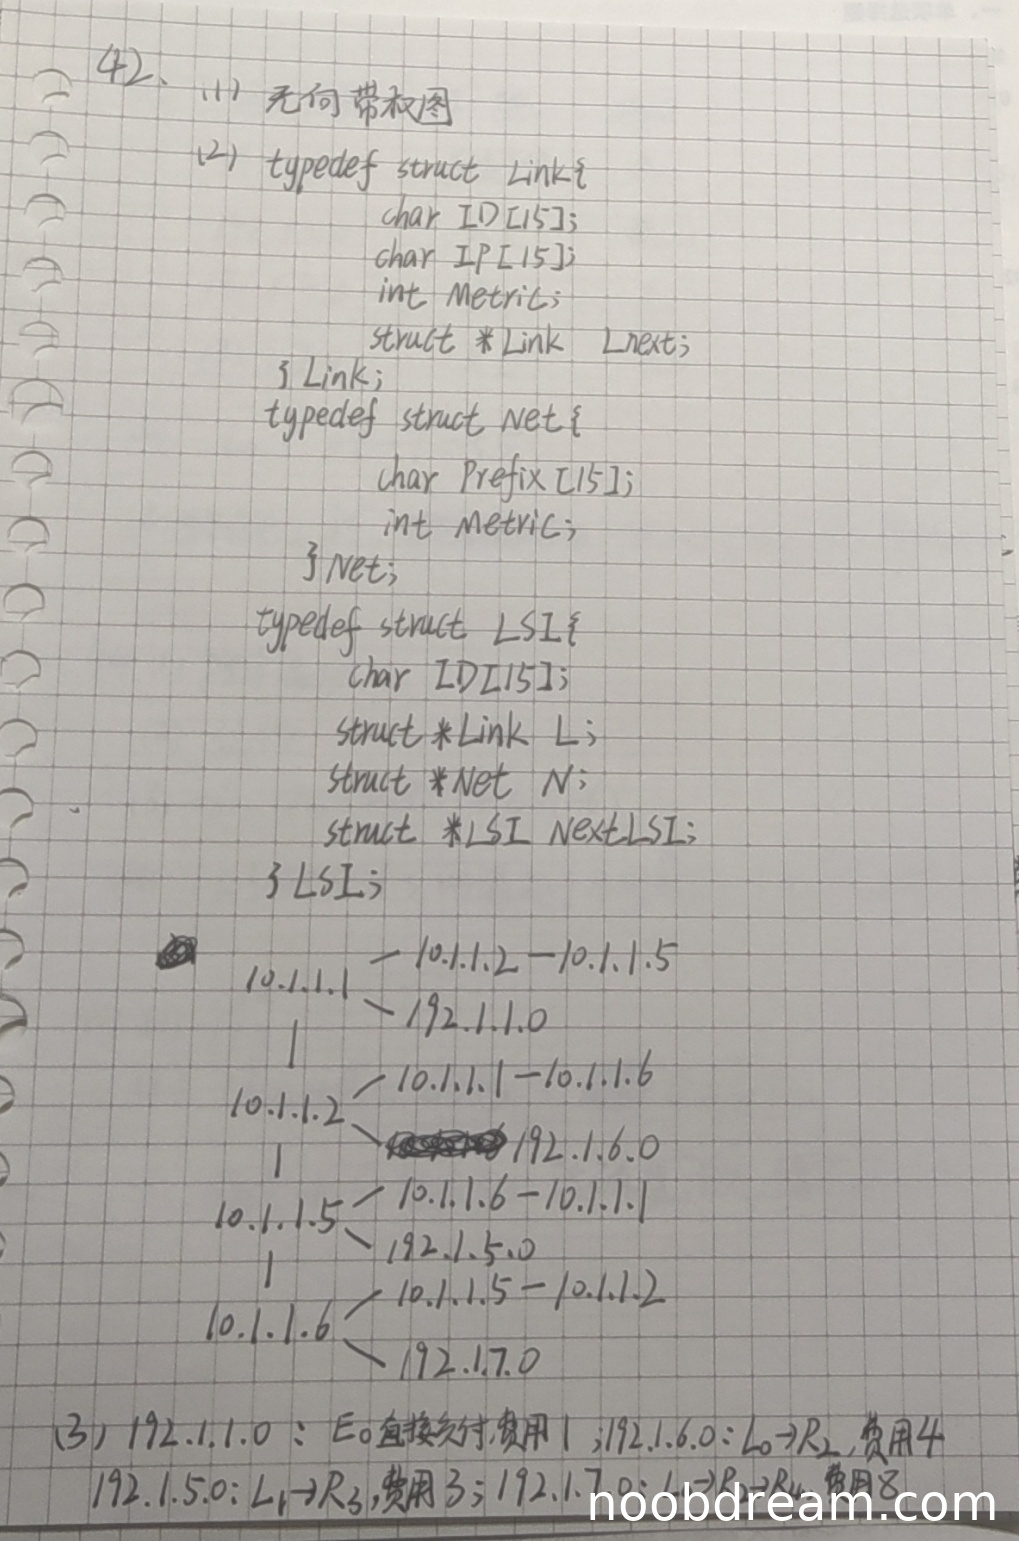 42. (1) 无向带权图
(2) typedef struct Link{
char ID[15];
char IP[15];
int Metric;
struct *Link Lnext;
}Link;
typedef struct Net{
char Prefix[15];
int Metric;
}Net;
typedef struct LSI{
char ID[15];
struct *Link L;
struct *Net N;
struct *LSI NextLSI;
}LSI;
10.1.1.2-10.1.1.5
10.1.1.1
192.1.1.0
10.1.1.1-10.1.1.6
10.1.1.2
192.1.6.0
10.1.1.6-10.1.1.1
10.1.1.5
192.1.5.0
10.1.1.5-10.1.1.2
10.1.1.6
192.1.7.0
(3) 192.1.1.0: E0直接交付,费用1;192.1.6.0:L0→R2,费用4
192.1.5.0:L1→R3,费用3;192.1.7.0: 费用8
noobdream.com